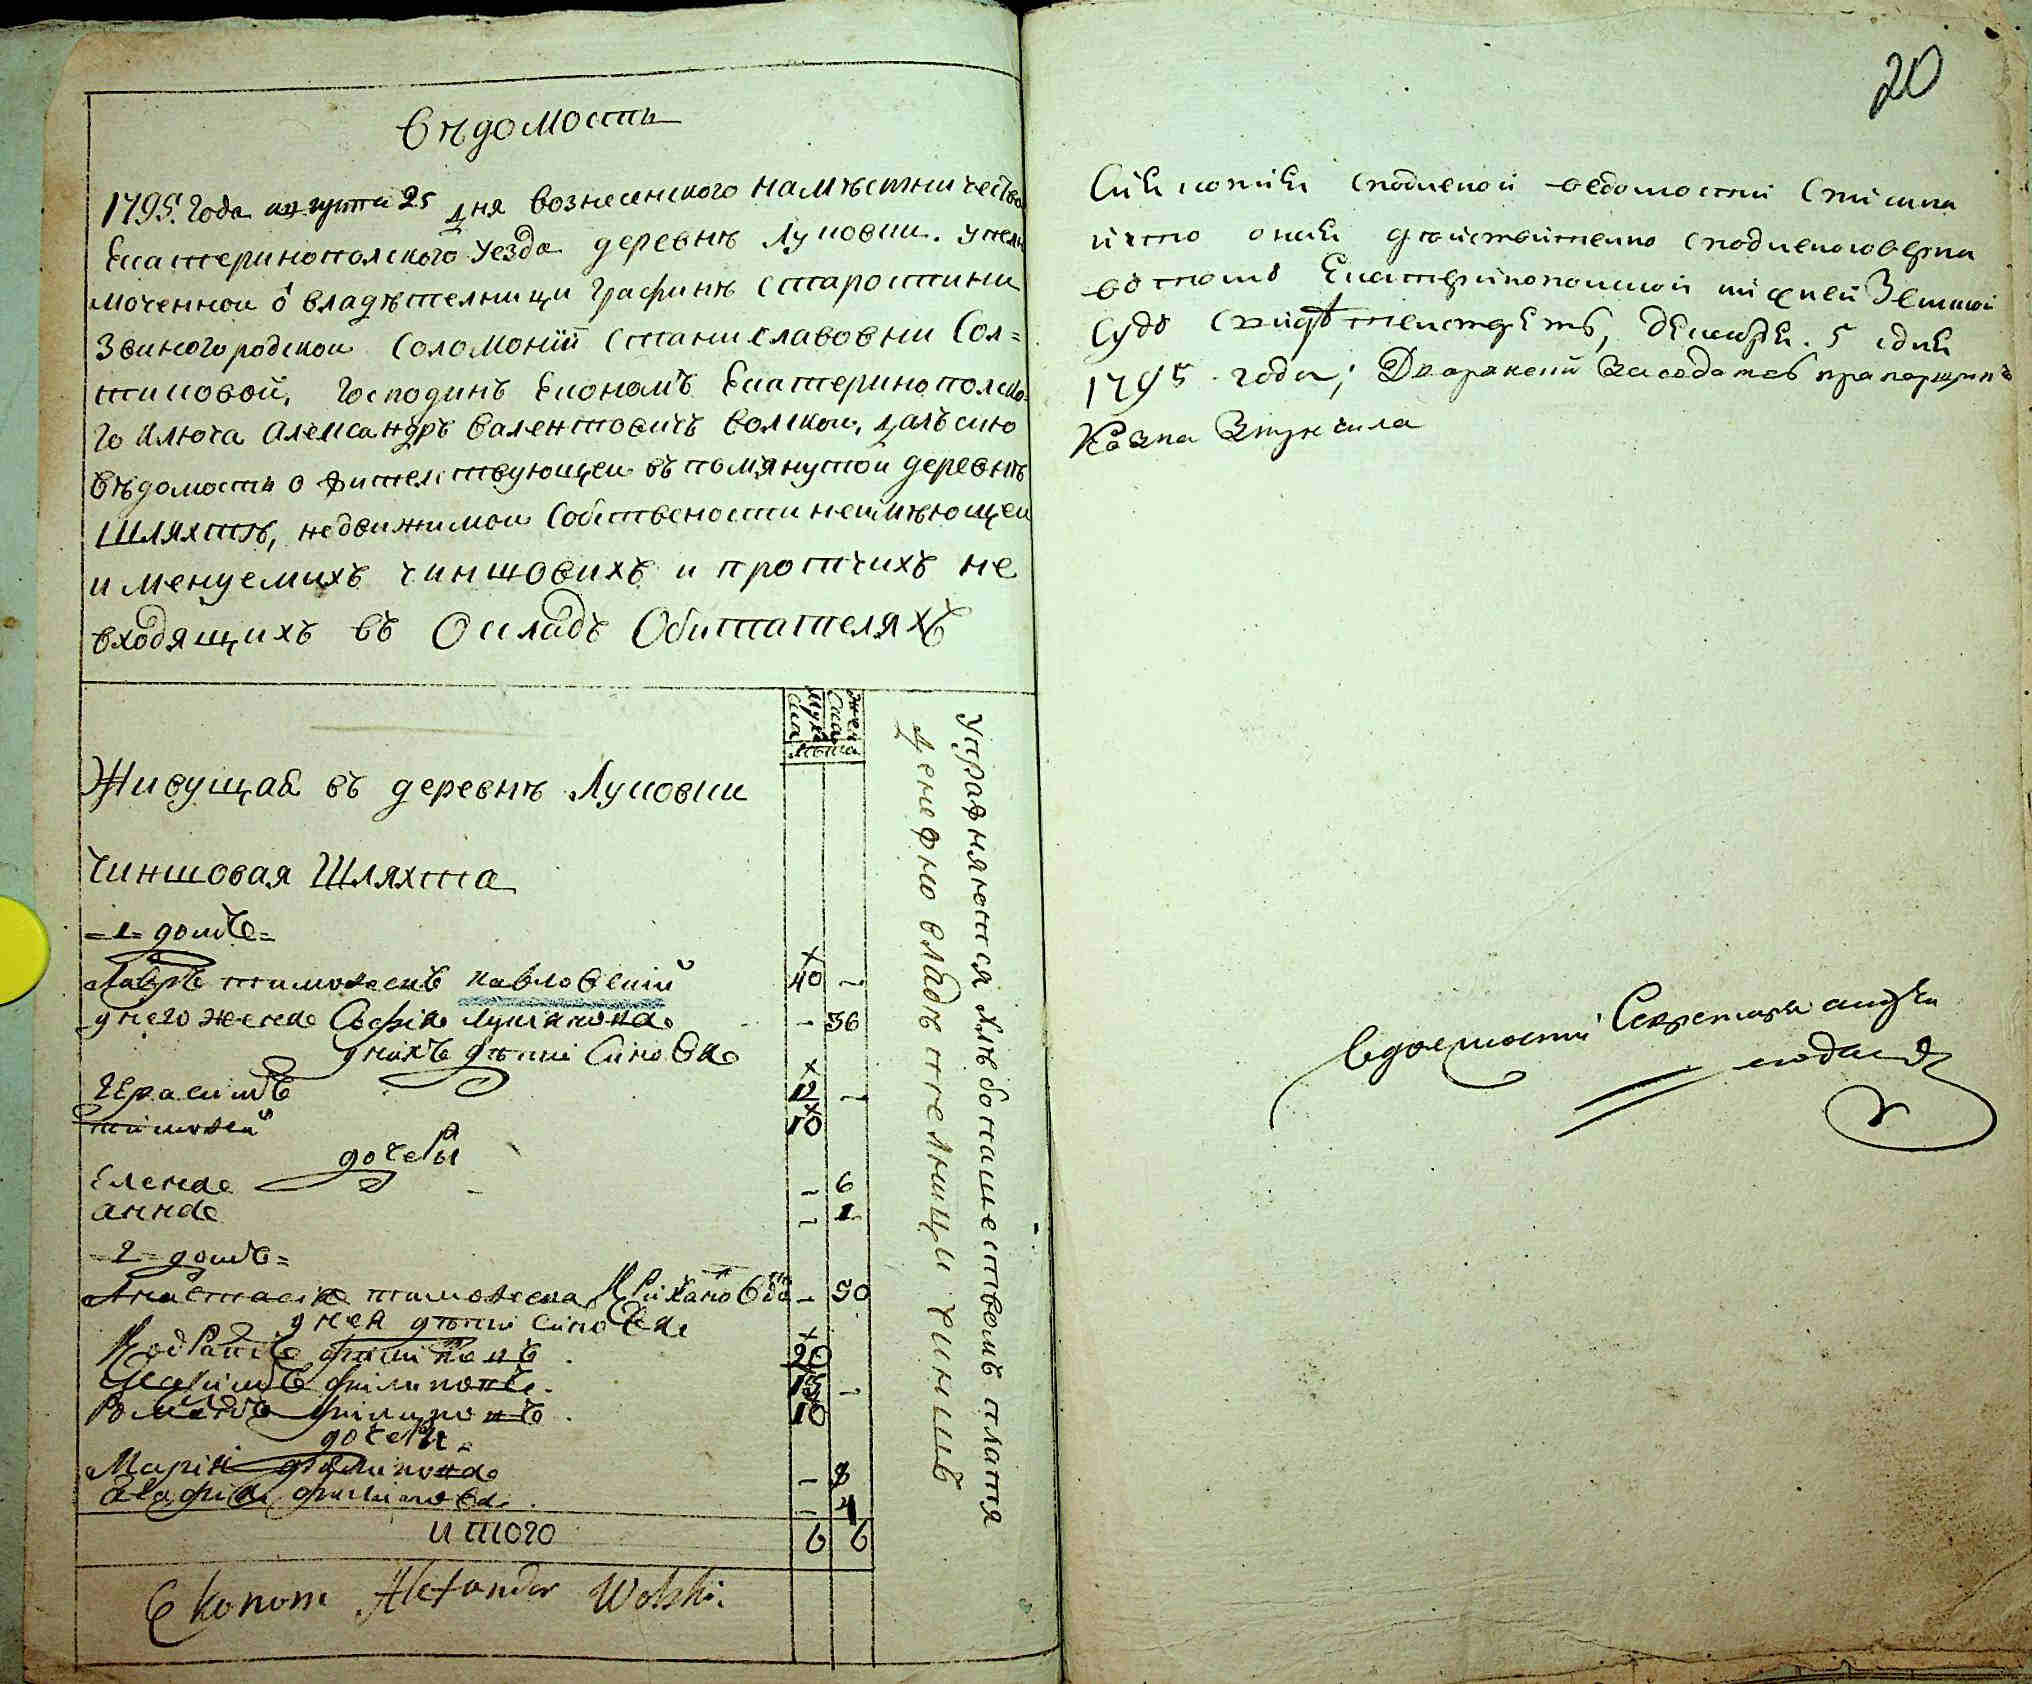 Вѣдомость
1795. Года августа 25 дня вознесенского намѣстничества
Екатеринополского уезда деревнѣ Луковки. уполно
моченной ѿ владѣтелници Графинѣ Старостини
Звиногородской Соломонїи Станиславовни Сол=
тиковой, Господинъ Економъ Екатеринополско=
го Ключа Александръ валентовичъ волской, далъ сию
вѣдомость о жителствующей въ помянутой деревнѣ
Шляхтѣ, недвижимои собствености неимѣющей
именуемихъ чиншовихъ и протчихъ не
входящихъ въ Окладъ Обитателяхъ
муж
ска
жен
ска
лѣта
Живущая въ деревнѣ Луковки
чиншовая Шляхта
=1= домъ=
Лавръ тимофеевъ павловский 40 —
у него жена Софiя — 36
у нихъ дѣти синова
Герасимъ 12 —
тимофей 10
дочеры
Елена — 6
анна — 1
=2= домъ=
Анастасiя тимофеева — 50
у нея дѣти синова
Кодратъ филиповъ 20
Герасимъ филиповъ 15 —
Романъ филиповъ 10
дочери
Марiя филипова — 8
агафiя филипова — 4
итого 6 6
Ekonom Alexander Wolski.
Упражняются хлѣбопашествомъ платя
Денежно владѣтелници чиншъ
20
Сия копия с подленой ведомости списана
и что оная действительно с подленою верна
вѣ томъ Екатеринопольской нижней Земской
Судъ свидѣтельствуетъ, декабря. 5 дня
1795 года; Дворянский Заседатель прапорщикъ
Секретарь